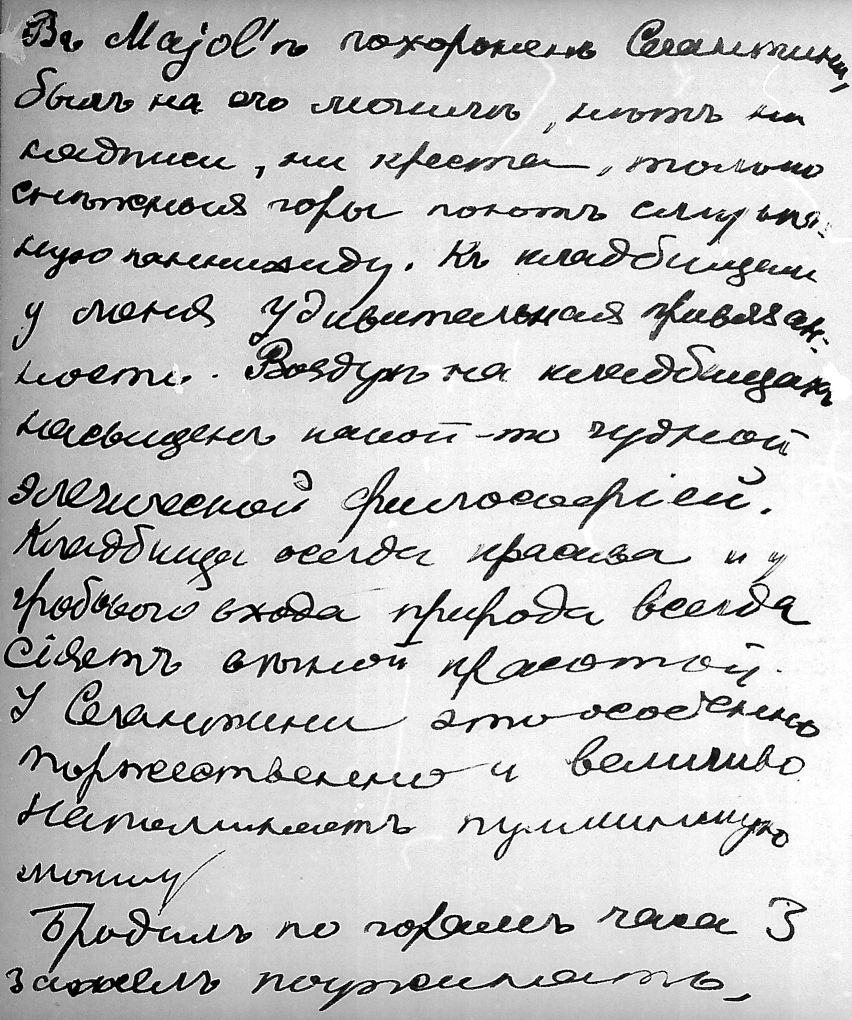 Въ Majol'ѣ похороненъ Сегантини,
былъ на его могилѣ, нѣтъ ни
надписи, ни креста, только
снѣжныя горы поютъ
ную паннихиду. Къ кладбищам
у меня удивительная привязан-
ность. Воздухъ на кладбищахъ
насыщенъ какой-то чудной
элегической философіей.
Кладбища всегда красива и у
гробового входа природа всегда
сіяетъ вѣчной красотой.
У Сегантини это особенно
торжественно и величиво
Напоминаетъ
могилу
Бродилъ по горамъ часа 3
зашелъ поужинать,